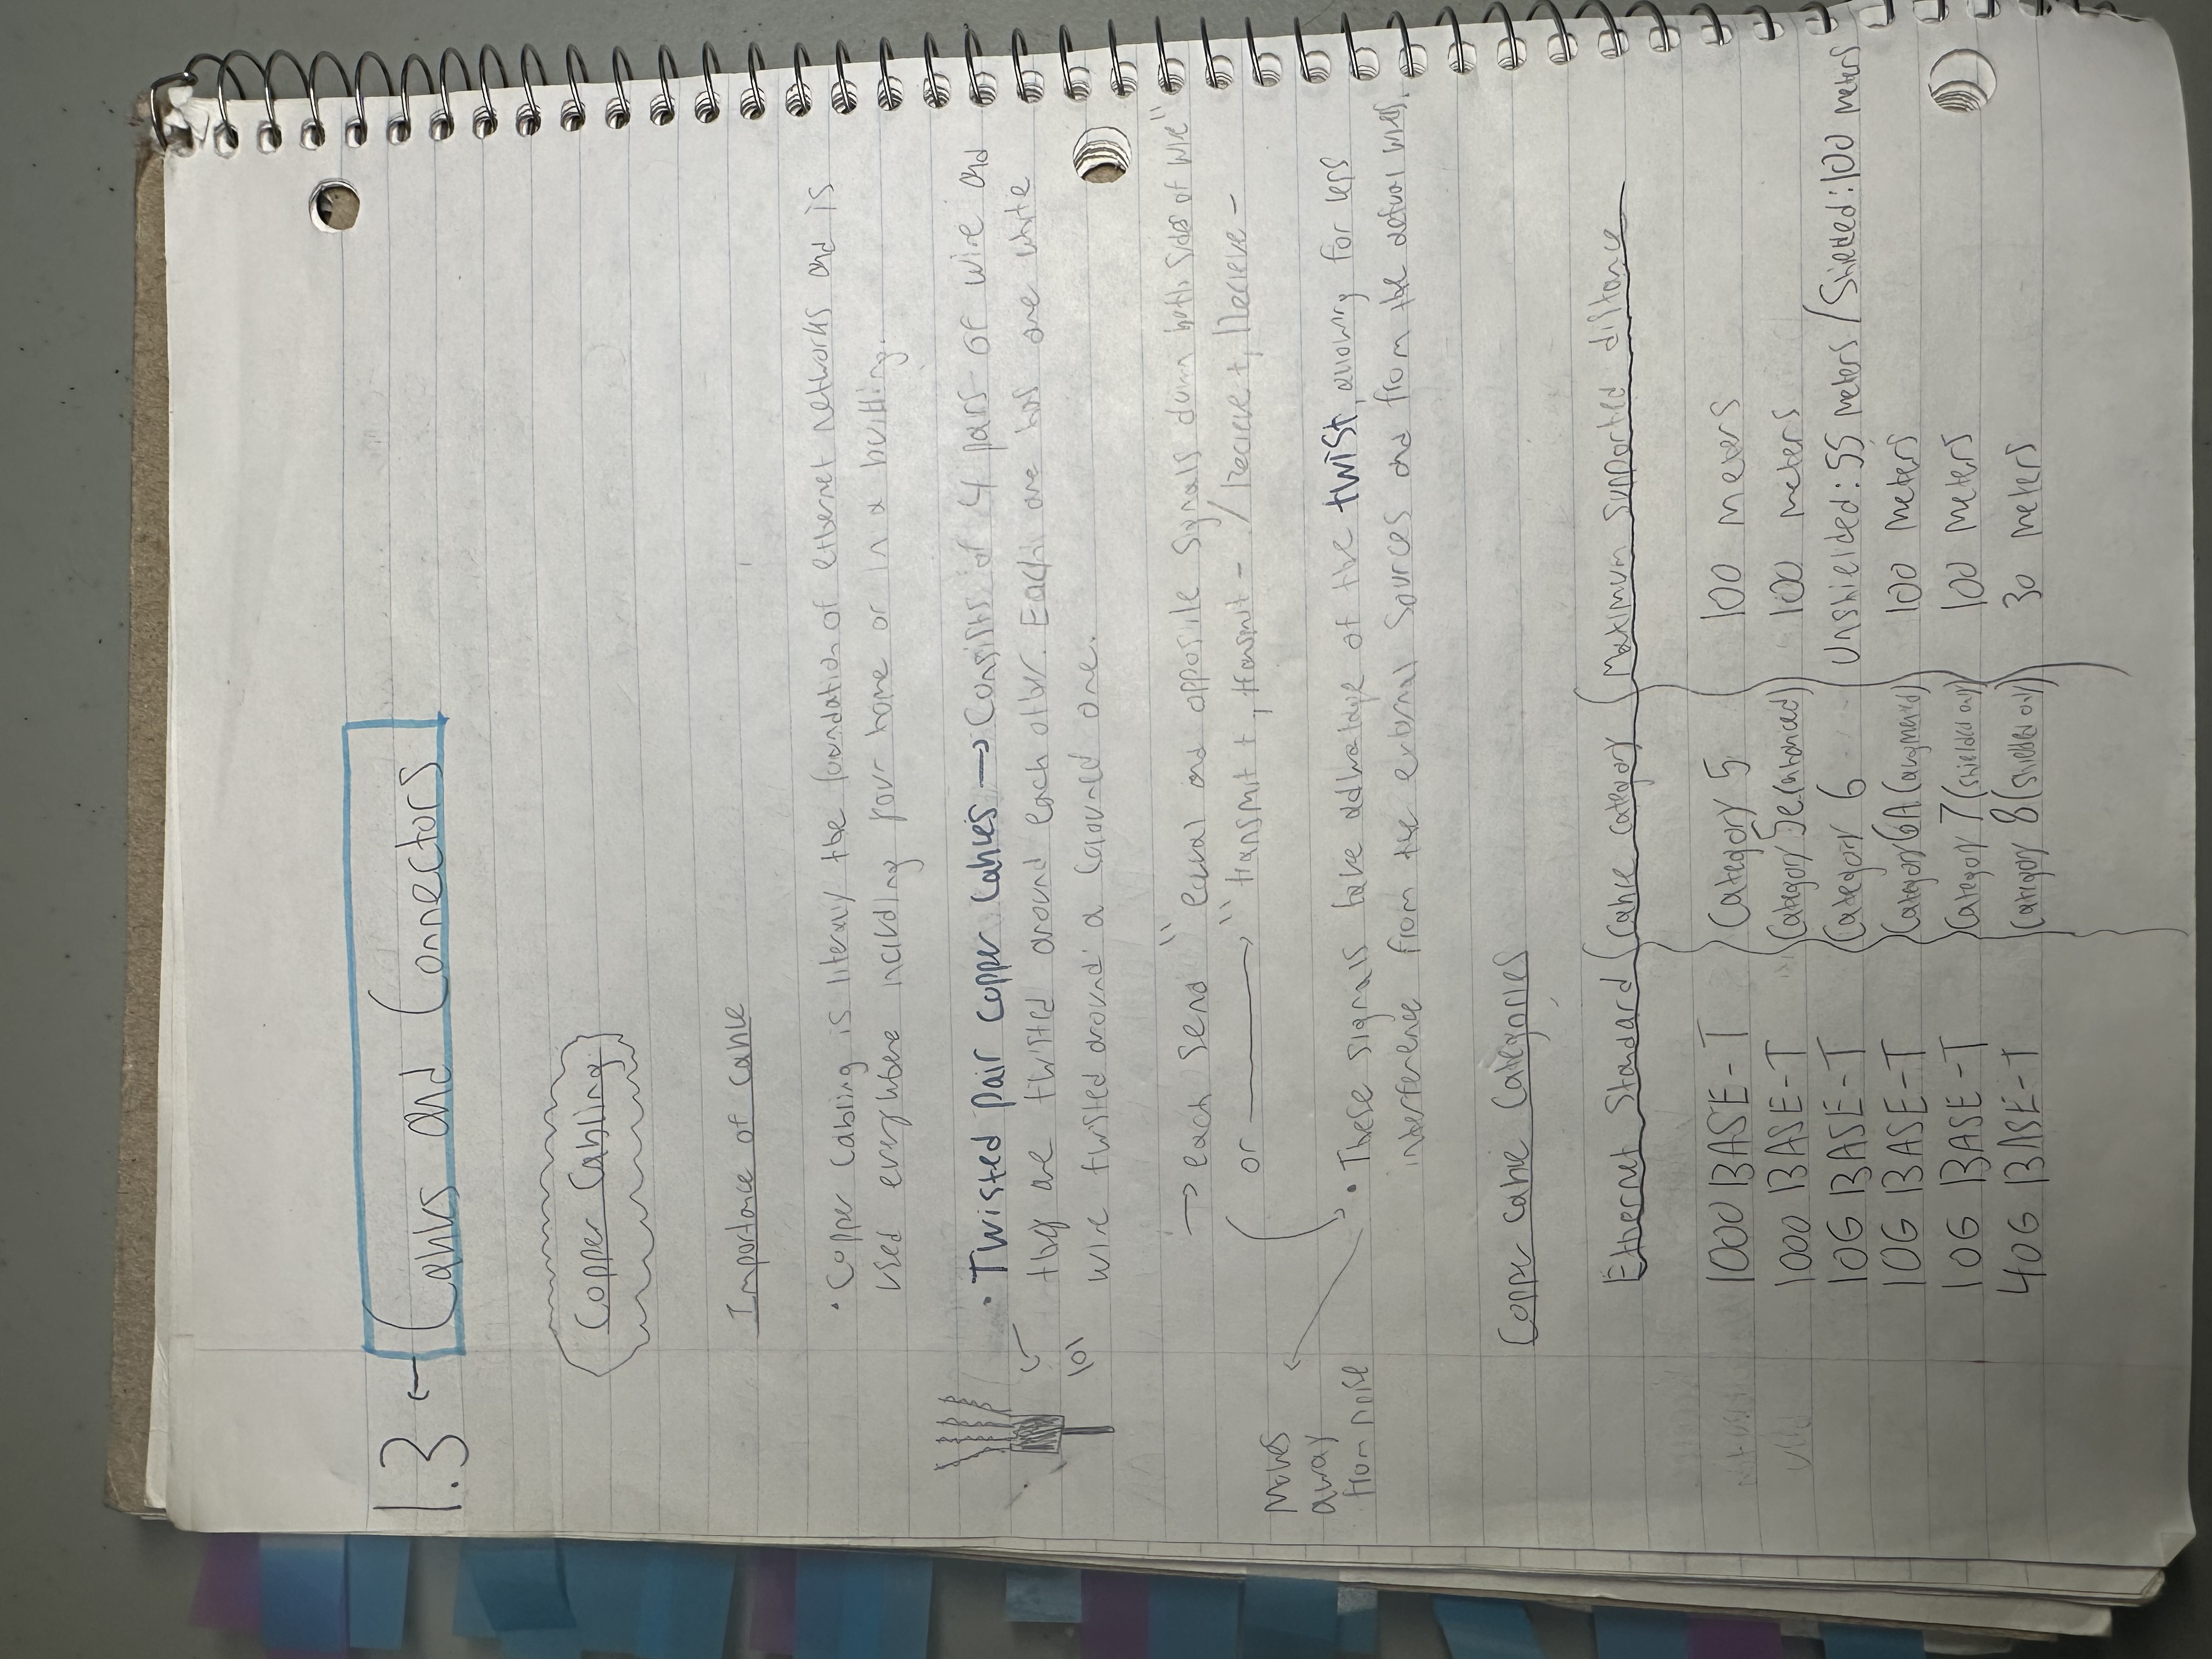 1.3 ← Cables and Connectors
Copper Cabling
Importance of cable
• Copper Cabling is literaly the foundation of ethernet networks and is
used everywhere including your home or in a building.
• Twisted pair copper cables → Consists of 4 pairs of wire and
they are twisted around each other. Each one has one white
wire twisted around a coloured one.
lol
→ each send "equal and opposite signals down both sides of wire"
or → "transmit +, transmit - / Recieve +, Recieve -
Moves
away
from noise
• These signals take advantage of the twist, allowing for less
interference from the external sources and from the actual wires.
Copper Cable Categories
Ethernet Standard Cable category Maximum supported distance
1000 BASE-T Category 5 100 meters
1000 BASE-T Category 5e (enhanced) 100 meters
10G BASE-T Category 6 Unshielded: 55 meters / Shielded: 100 meters
10G BASE-T Category 6A (augmented) 100 meters
10G BASE-T Category 7 (shielded only) 100 meters
40G BASE-T Category 8 (shielded only) 30 meters